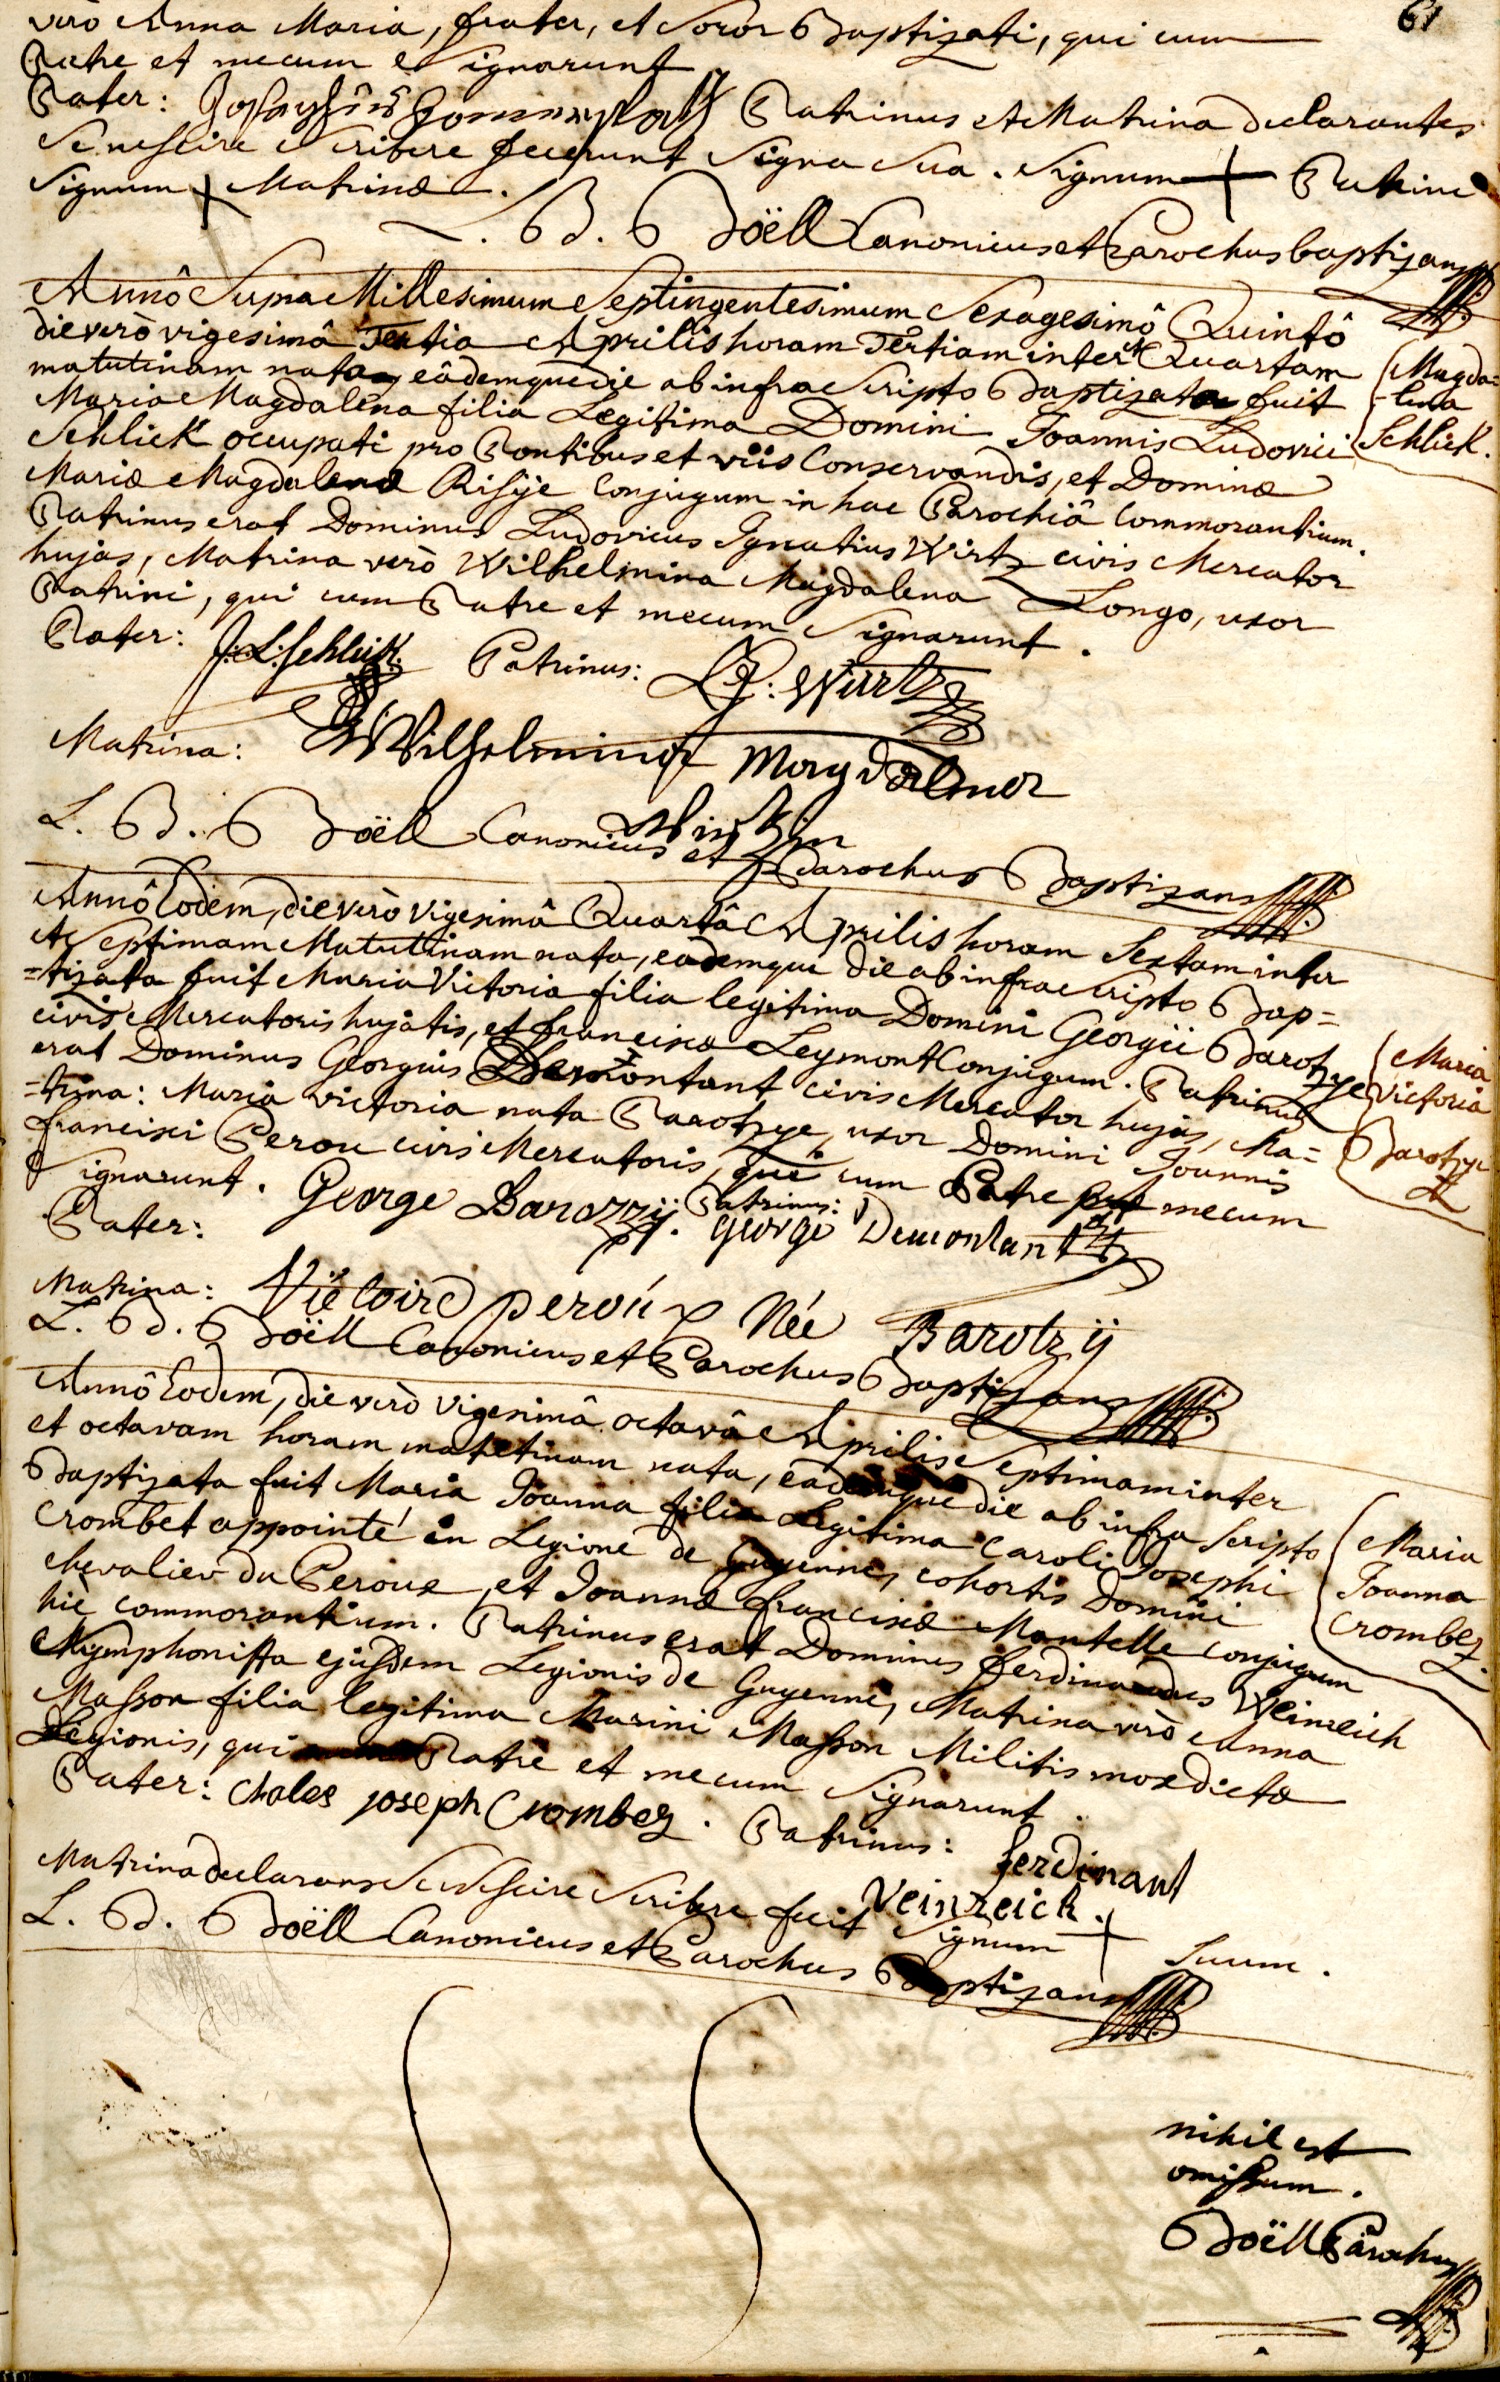 61
verò Anna Maria, frater, et Soror Baptizati, qui cum
Patre et mecum Signarunt
Pater: Patrinus et Matrina declarantes
Se nescire Scribere fecerunt Signa Sua. Signum + Patrini
Signum + Matrinæ.
L. B. Boëll Canonicus et Parochus baptizans
Annô Supra Millesimum Septingentesimum Sexagesimô Quintô
die verò vigesimâ Tertia Aprilis horam Tertiam inter et Quartam
matutinam nata, eâdemque die ab infra Scripto Baptizata fuit
Maria Magdalena filia Legitima Domini Joannis Ludovici
Schlick occupati pro Pontibus et viis Conservandis, et Dominæ
Mariæ Magdalenæ Risÿe Conjugum in hac Parochiâ Commorantium.
Patrinus erat Dominus Ludovicus Ignatius Wirtz civis Mercator
hujas, Matrina verò Wilhelmina Magdalena Longo, uxor
Patrini, qui cum Patre et mecum Signarunt.
Magda=
lena
Schlick.
Pater: J: L: Schlick. Patrinus: L J: Würtz
Matrina: Wilhelmina Magdalena
Wirtzin
L. B. Boëll Canonicus et Parochus Baptizans
Annô Eodem, die verò vigesimâ Quartâ Aprilis horam Sextam inter
et Septimam Matutinam nata, eademque die ab infra Scripto Bap=
=tizata fuit Maria Victoria filia legitima Domini Georgii Barotzye
civis Mercatoris hujatis, et franciscæ Leymont Conjugum. Patrinus
erat Dominus Georgius Demontant civis Mercator hujas, Ma=
=trina: Maria victoria nata Barotzye, uxor Domini Joannis
francisci Perou civis Mercatoris, qui cum Patre et mecum
Signarunt.
Maria
Victoria
Barotzye
Pater: George Barozzÿ. Patrinus: George Demontant
Matrina: Victoire peroux Née Barotzÿ
L. B. Boëll Canonicus et Parochus Baptizans
Annô Eodem, die verò vigesimâ octavâ Aprilis Septimam inter
et octavam horam matutinam nata, eademque die ab infra Scripto
Baptizata fuit Maria Joanna filia Legitima Caroli Josephi
Crombet appointé in Legione de Guyenne, cohortis Domini
chevalier du Peroux, et Joannæ franciscæ Mantelle conjugum
hic commorantium. Patrinus erat Dominus ferdinandus Weinreich
Symphonista ejusdem Legionis de Guyenne, Matrina verò Anna
Masson filia legitima Marini Masson Militis mox dictæ
Legionis, qui Patre et mecum Signarunt.
Maria
Joanna
Crombez.
Pater: Chales joseph Crombez. Patrinus: ferdinant
Veinreich.
Matrina declarans Se nescire Scribere fecit Signum + Suum.
L. B. Boëll Canonicus et Parochus Baptizans
nihil est
omissum.
Boëll Parochus